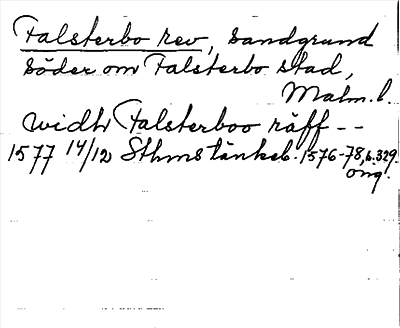 Falsterbo rev, Sandgrund
söder om Falsterbo stad,
Malm. l.
widh Falsterboo räff --
1577 14/12 Sthms tänkeb. 1576-78, s. 329.
orig.